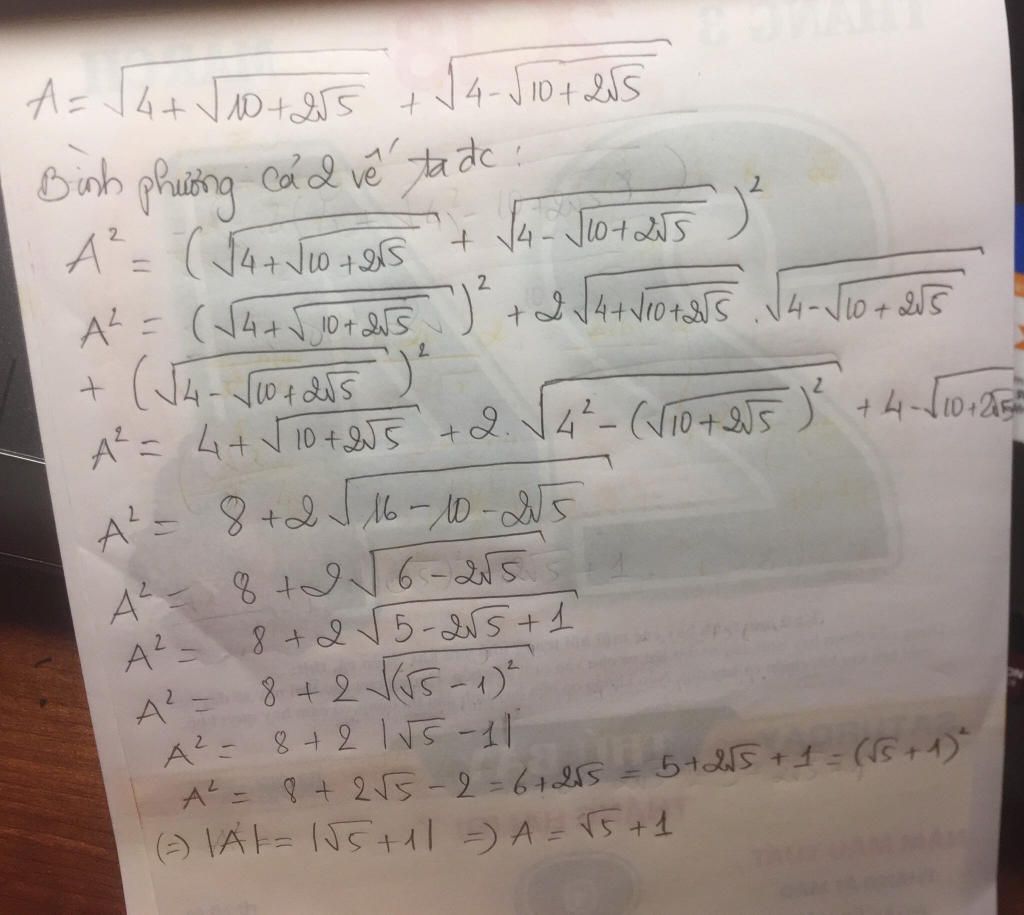 A = √(4 + √(10 + 2√5)) + √(4 - √(10 + 2√5))
Bình phương cả 2 vế ta đc :
A² = (√(4 + √(10 + 2√5)) + √(4 - √(10 + 2√5)))²
A² = (√(4 + √(10 + 2√5)))² + 2√(4 + √(10 + 2√5)) . √(4 - √(10 + 2√5))
+ (√(4 - √(10 + 2√5)))²
A² = 4 + √(10 + 2√5) + 2. √(4² - (√(10 + 2√5))²) + 4 - √(10 + 2√5)
A² = 8 + 2√(16 - 10 - 2√5)
A² = 8 + 2√(6 - 2√5)
A² = 8 + 2√(5 - 2√5 + 1)
A² = 8 + 2√((√5 - 1)²)
A² = 8 + 2 |√5 - 1|
A² = 8 + 2√5 - 2 = 6 + 2√5 = 5 + 2√5 + 1 = (√5 + 1)²
(=) |A| = |√5 + 1| =) A = √5 + 1